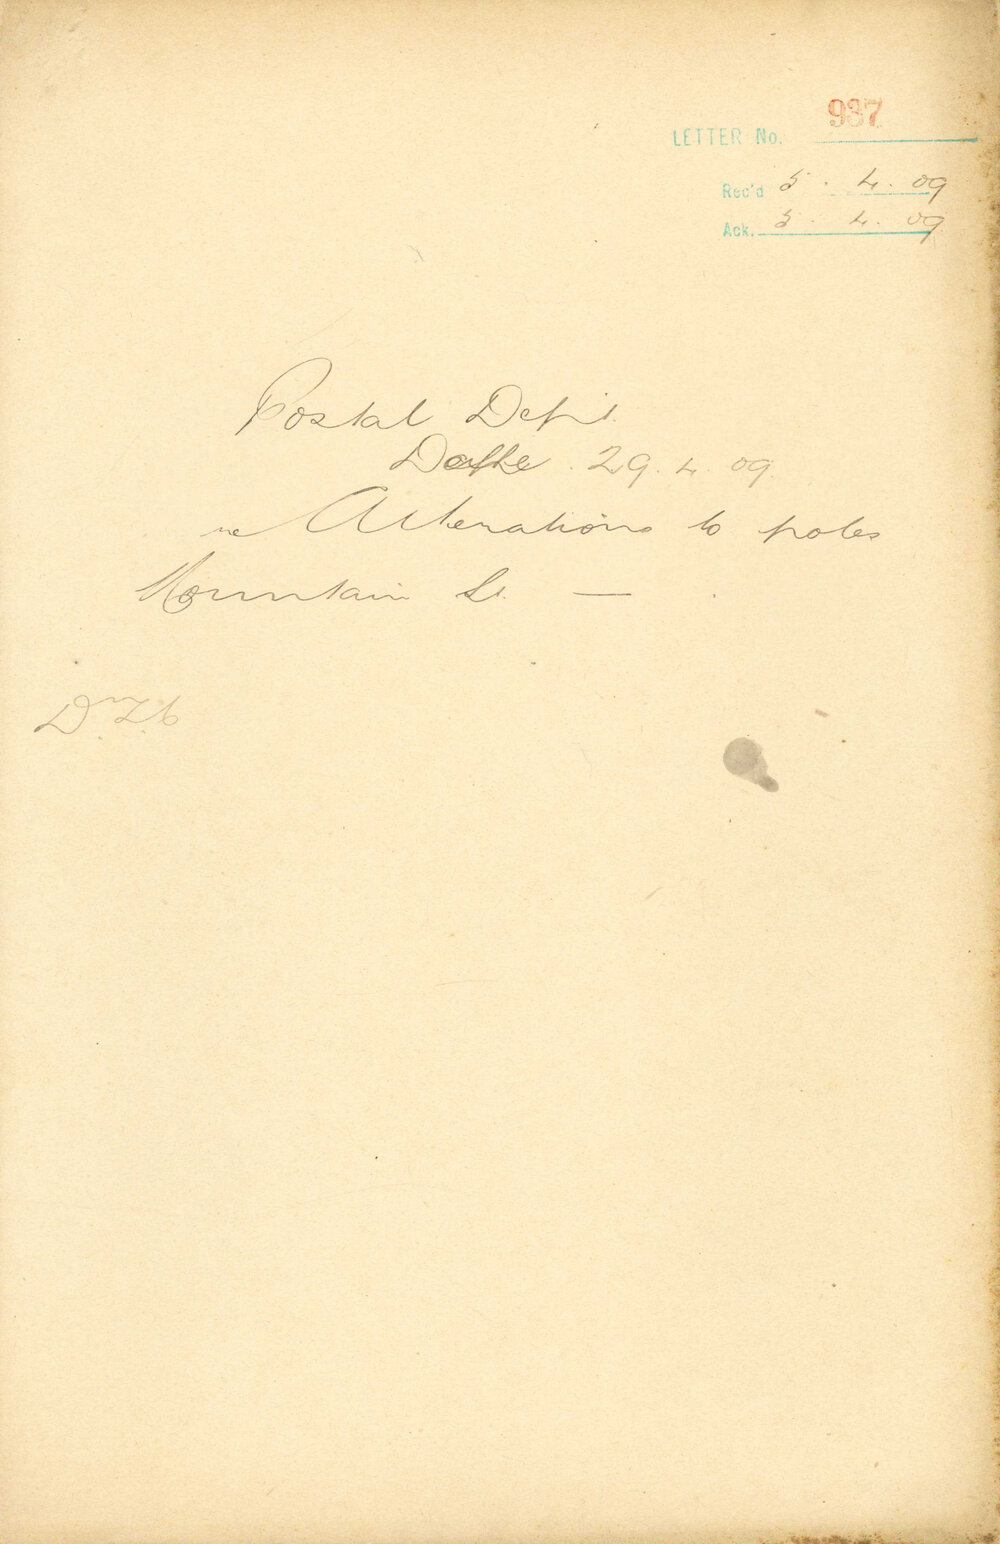 LETTER No. 937
Rec'd 5 . 4 . 09
Ack. 5 . 4 . 09
Postal Dept.
Date 29 . 4 . 09
re Alterations to poles
Mountain St. —